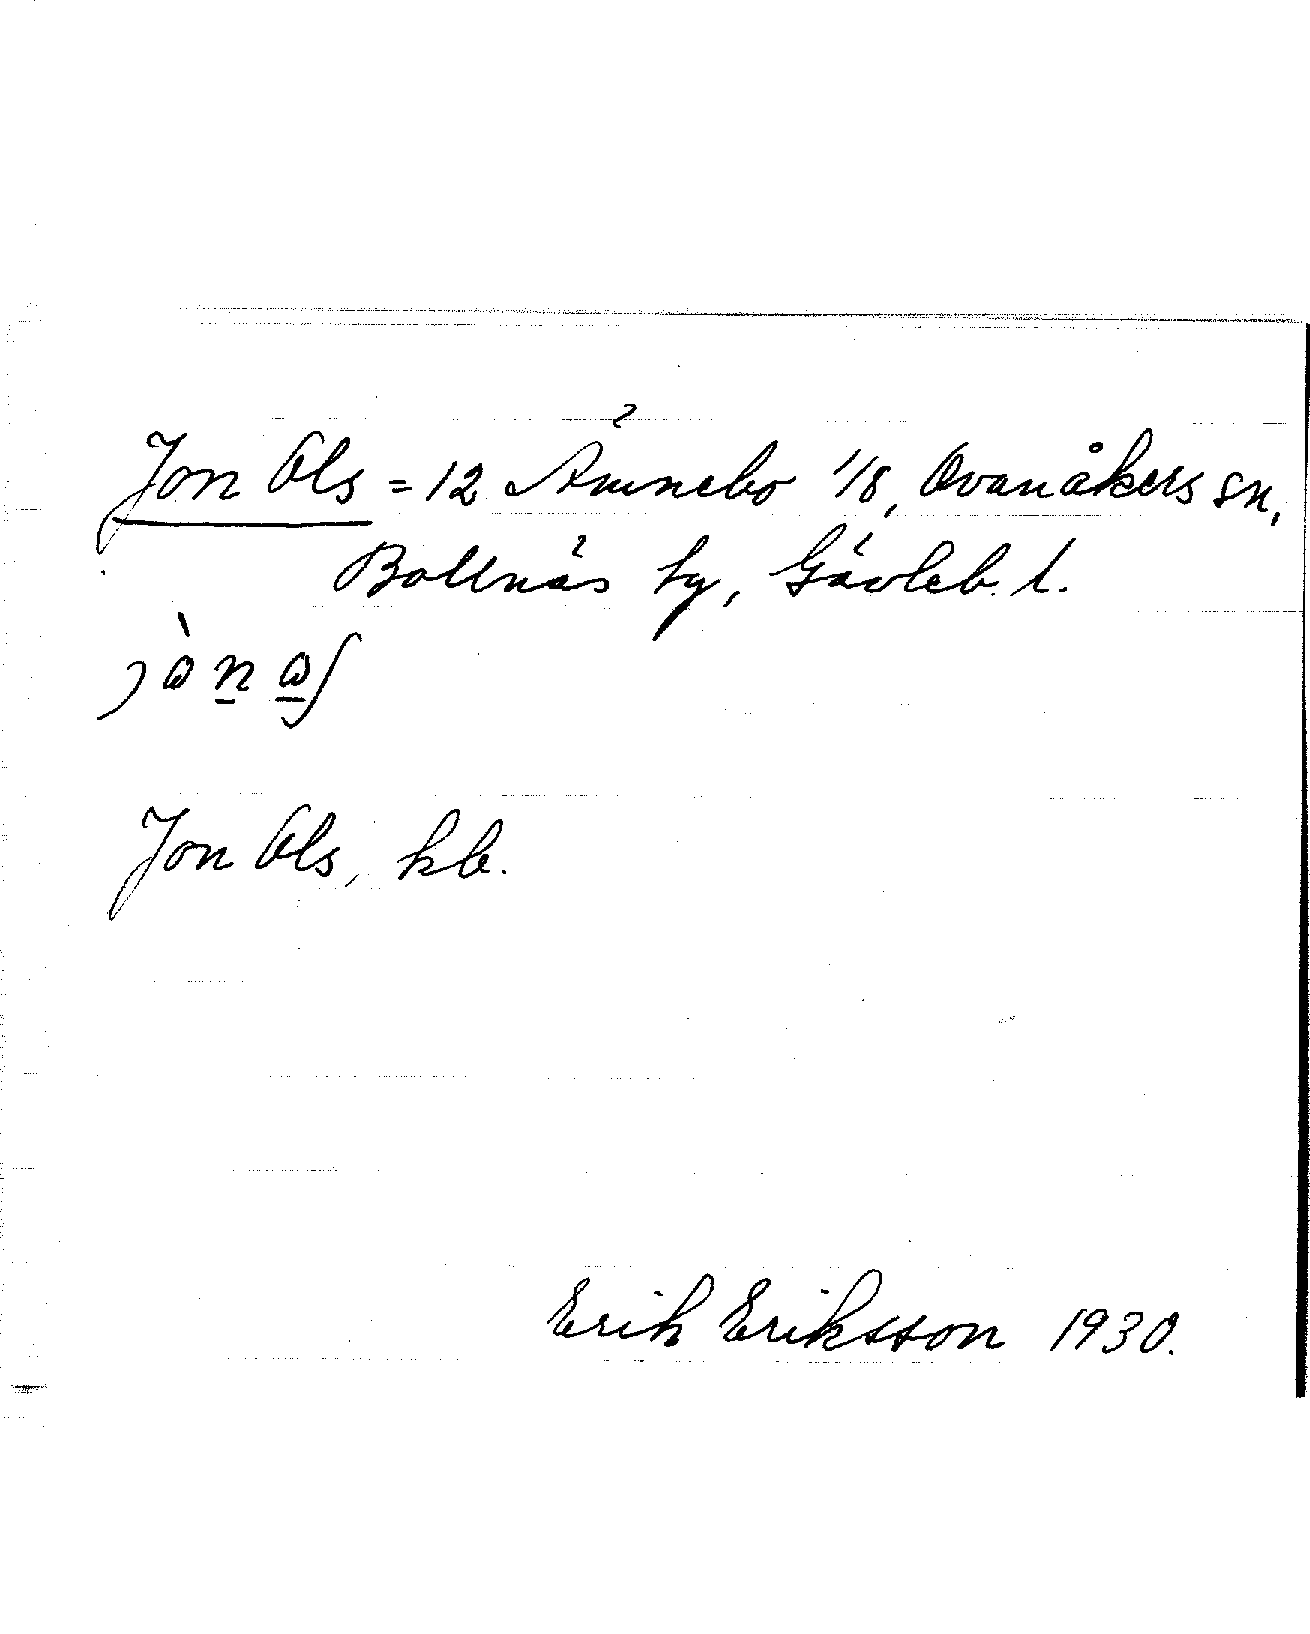 Jon Ols = 12 Ämnebo 1/8, Ovanåkers sn,
Bollnäs tg, Gävleb. l.
Jon Ols, kb.
Erik Eriksson 1930.